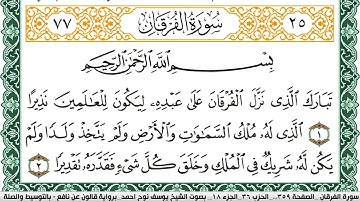 ٧٧ سُورَةُ الفُرْقَانِ ٢٥
بِسْمِ اللَّهِ الرَّحْمَٰنِ الرَّحِيمِ
تَبَارَكَ الَّذِى نَزَّلَ الْفُرْقَانَ عَلَىٰ عَبْدِهِۦ لِيَكُونَ لِلْعَٰلَمِينَ نَذِيرًا
١ الَّذِى لَهُۥ مُلْكُ السَّمَٰوَٰتِ وَالْأَرْضِ وَلَمْ يَتَّخِذْ وَلَدًا وَلَمْ
يَكُن لَّهُۥ شَرِيكٌ فِى الْمُلْكِ وَخَلَقَ كُلَّ شَىْءٍ فَقَدَّرَهُۥ تَقْدِيرًا ٢
سورة الفرقان .. الصفحة ٣٥٩.. الحزب ٣٦ .. الجزء ١٨ .. بصوت الشيخ يوسف نوح احمد .برواية قالون عن نافع - بالتوسيط والصلة